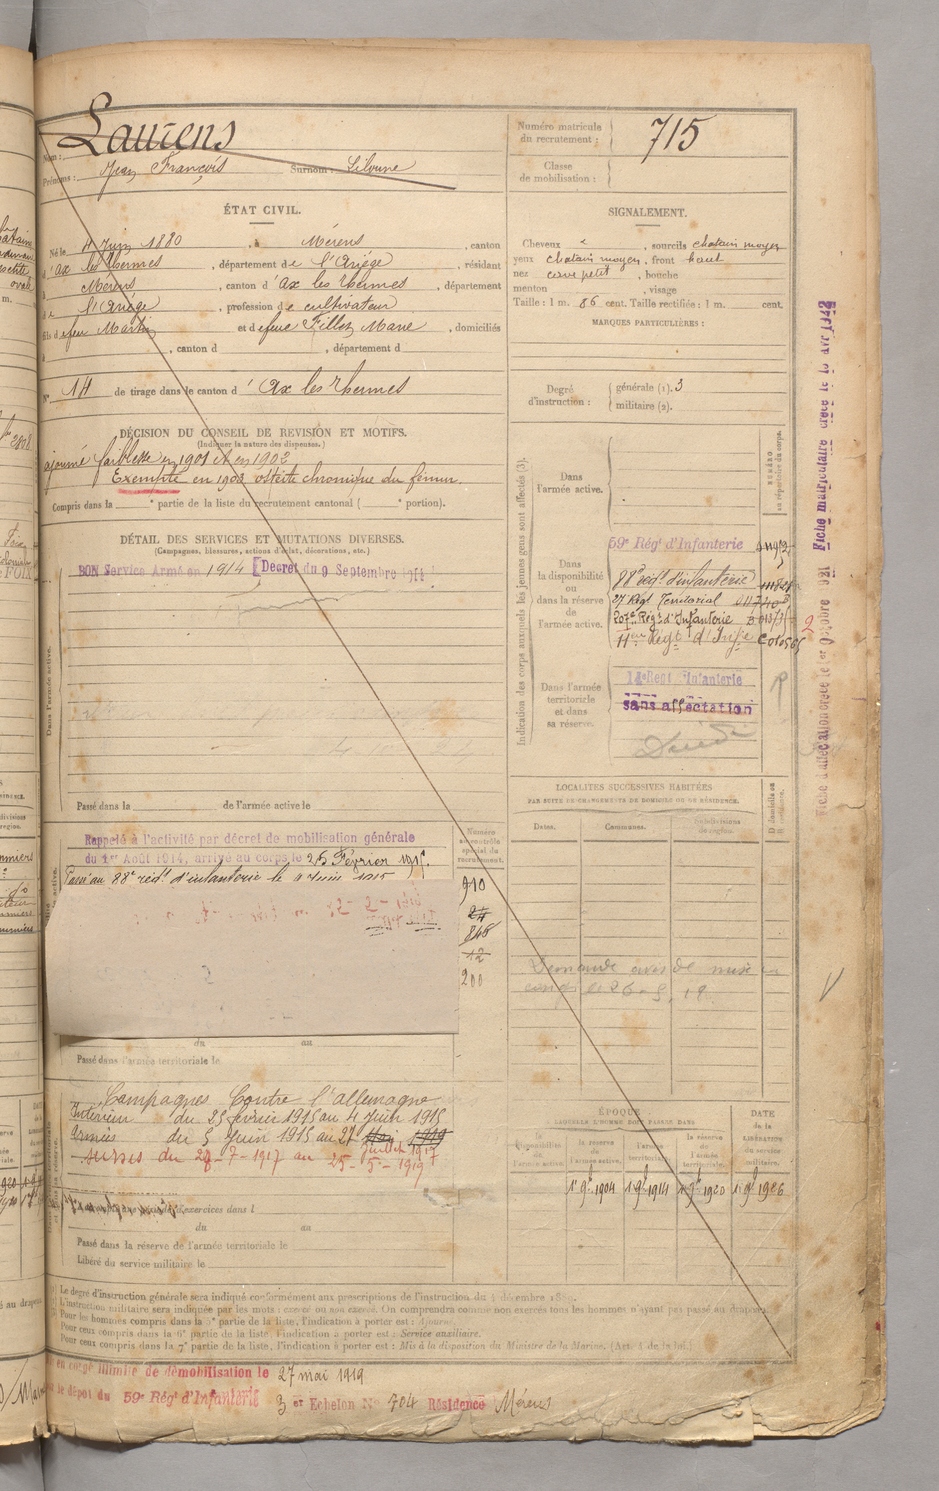 Laurens
Nom :
Prénoms : Jean François Surnom :
Numéro matricule du recrutement : 715
Classe de mobilisation :
ÉTAT CIVIL.
Né le 4 Juin 1880, à Mérens, canton
d'Ax les Thermes, département de l'Ariège, résidant
à Mérens, canton d'Ax les Thermes, département
de l'Ariège, profession de cultivateur
fils de feu Martin et de feue Marie, domiciliés
à , canton d , département d
N° 14 de tirage dans le canton d'Ax les Thermes
SIGNALEMENT.
Cheveux , sourcils chatain moyen
yeux chatain moyen, front haut
nez petit, bouche
menton , visage
Taille : 1 m. 86 cent. Taille rectifiée : 1 m. cent.
MARQUES PARTICULIÈRES :
Degré d'instruction : générale (1). 3
militaire (2).
DÉCISION DU CONSEIL DE REVISION ET MOTIFS.
(Indiquer la nature des dispenses.)
ajourné faiblesse en 1901 et en 1902
Exempté en 1903 ostéite chronique du fémur
Compris dans la ° partie de la liste du recrutement cantonal ( ° portion).
DÉTAIL DES SERVICES ET MUTATIONS DIVERSES.
(Campagnes, blessures, actions d'éclat, décorations, etc.)
BON Service Armé en 1914 [Décret du 9 Septembre 1914
Dans l'armée active.
Passé dans la de l'armée active le
Indication des corps auxquels les jeunes gens sont affectés (3).
NUMÉRO au répertoire du corps.
Dans l'armée active.
Dans la disponibilité ou dans la réserve de l'armée active.
59e Régt d'Infanterie
88e régt d'infanterie
27 Régt Territorial
207e Régt d'Infanterie
11me Régt d'Infie
Dans l'armée territoriale et dans sa réserve.
14e Regt Infanterie
sans affectation
LOCALITÉS SUCCESSIVES HABITÉES
PAR SUITE DE CHANGEMENTS DE DOMICILE OU DE RÉSIDENCE.
Dates. Communes. Subdivisions de région. D domicile ou R résidence.
Rappelé à l'activité par décret de mobilisation générale
du 1er Août 1914, arrivé au corps le 25 Février 1915.
Passé au 88e regt d'infanterie le 4 Juin 1915
Numéro au contrôle spécial du recrutement.
910
24
846
12
200
Demande avis de mise en
congé le 26-5, 19
du au
Passé dans l'armée territoriale le
Campagnes Contre l'allemagne
Intérieur du 25 février 1915 au 4 Juin 1915
Armées du 5 Juin 1915 au 27 Mai 1919 Juillet 1917
sursis du 28-7-1917 au 25-5-1919
ÉPOQUE
À LAQUELLE L'HOMME DOIT PASSER DANS
DATE de la LIBÉRATION du service militaire.
la disponibilité de l'armée active.
la réserve de l'armée active.
l'armée territoriale.
la réserve de l'armée territoriale.
1er 9bre 1904 1er 9bre 1914 1er 9bre 1920 1er 9bre 1926
du au
Passé dans la réserve de l'armée territoriale le
Libéré du service militaire le
Le degré d'instruction générale sera indiqué conformément aux prescriptions de l'instruction du 4 décembre 1889.
L'instruction militaire sera indiquée par les mots : exercé ou non exercé. On comprendra comme non exercés tous les hommes n'ayant pas passé au drapeau.
Pour les hommes compris dans la 5e partie de la liste, l'indication à porter est : Ajourné.
Pour ceux compris dans la 6e partie de la liste, l'indication à porter est : Service auxiliaire.
Pour ceux compris dans la 7e partie de la liste, l'indication à porter est : Mis à la disposition du Ministre de la Marine. (Art. 4 de la loi.)
en congé illimité de démobilisation le 27 mai 1919
le dépôt du 59e Régt d'Infanterie 3er Echelon No 704 Résidence Mérens